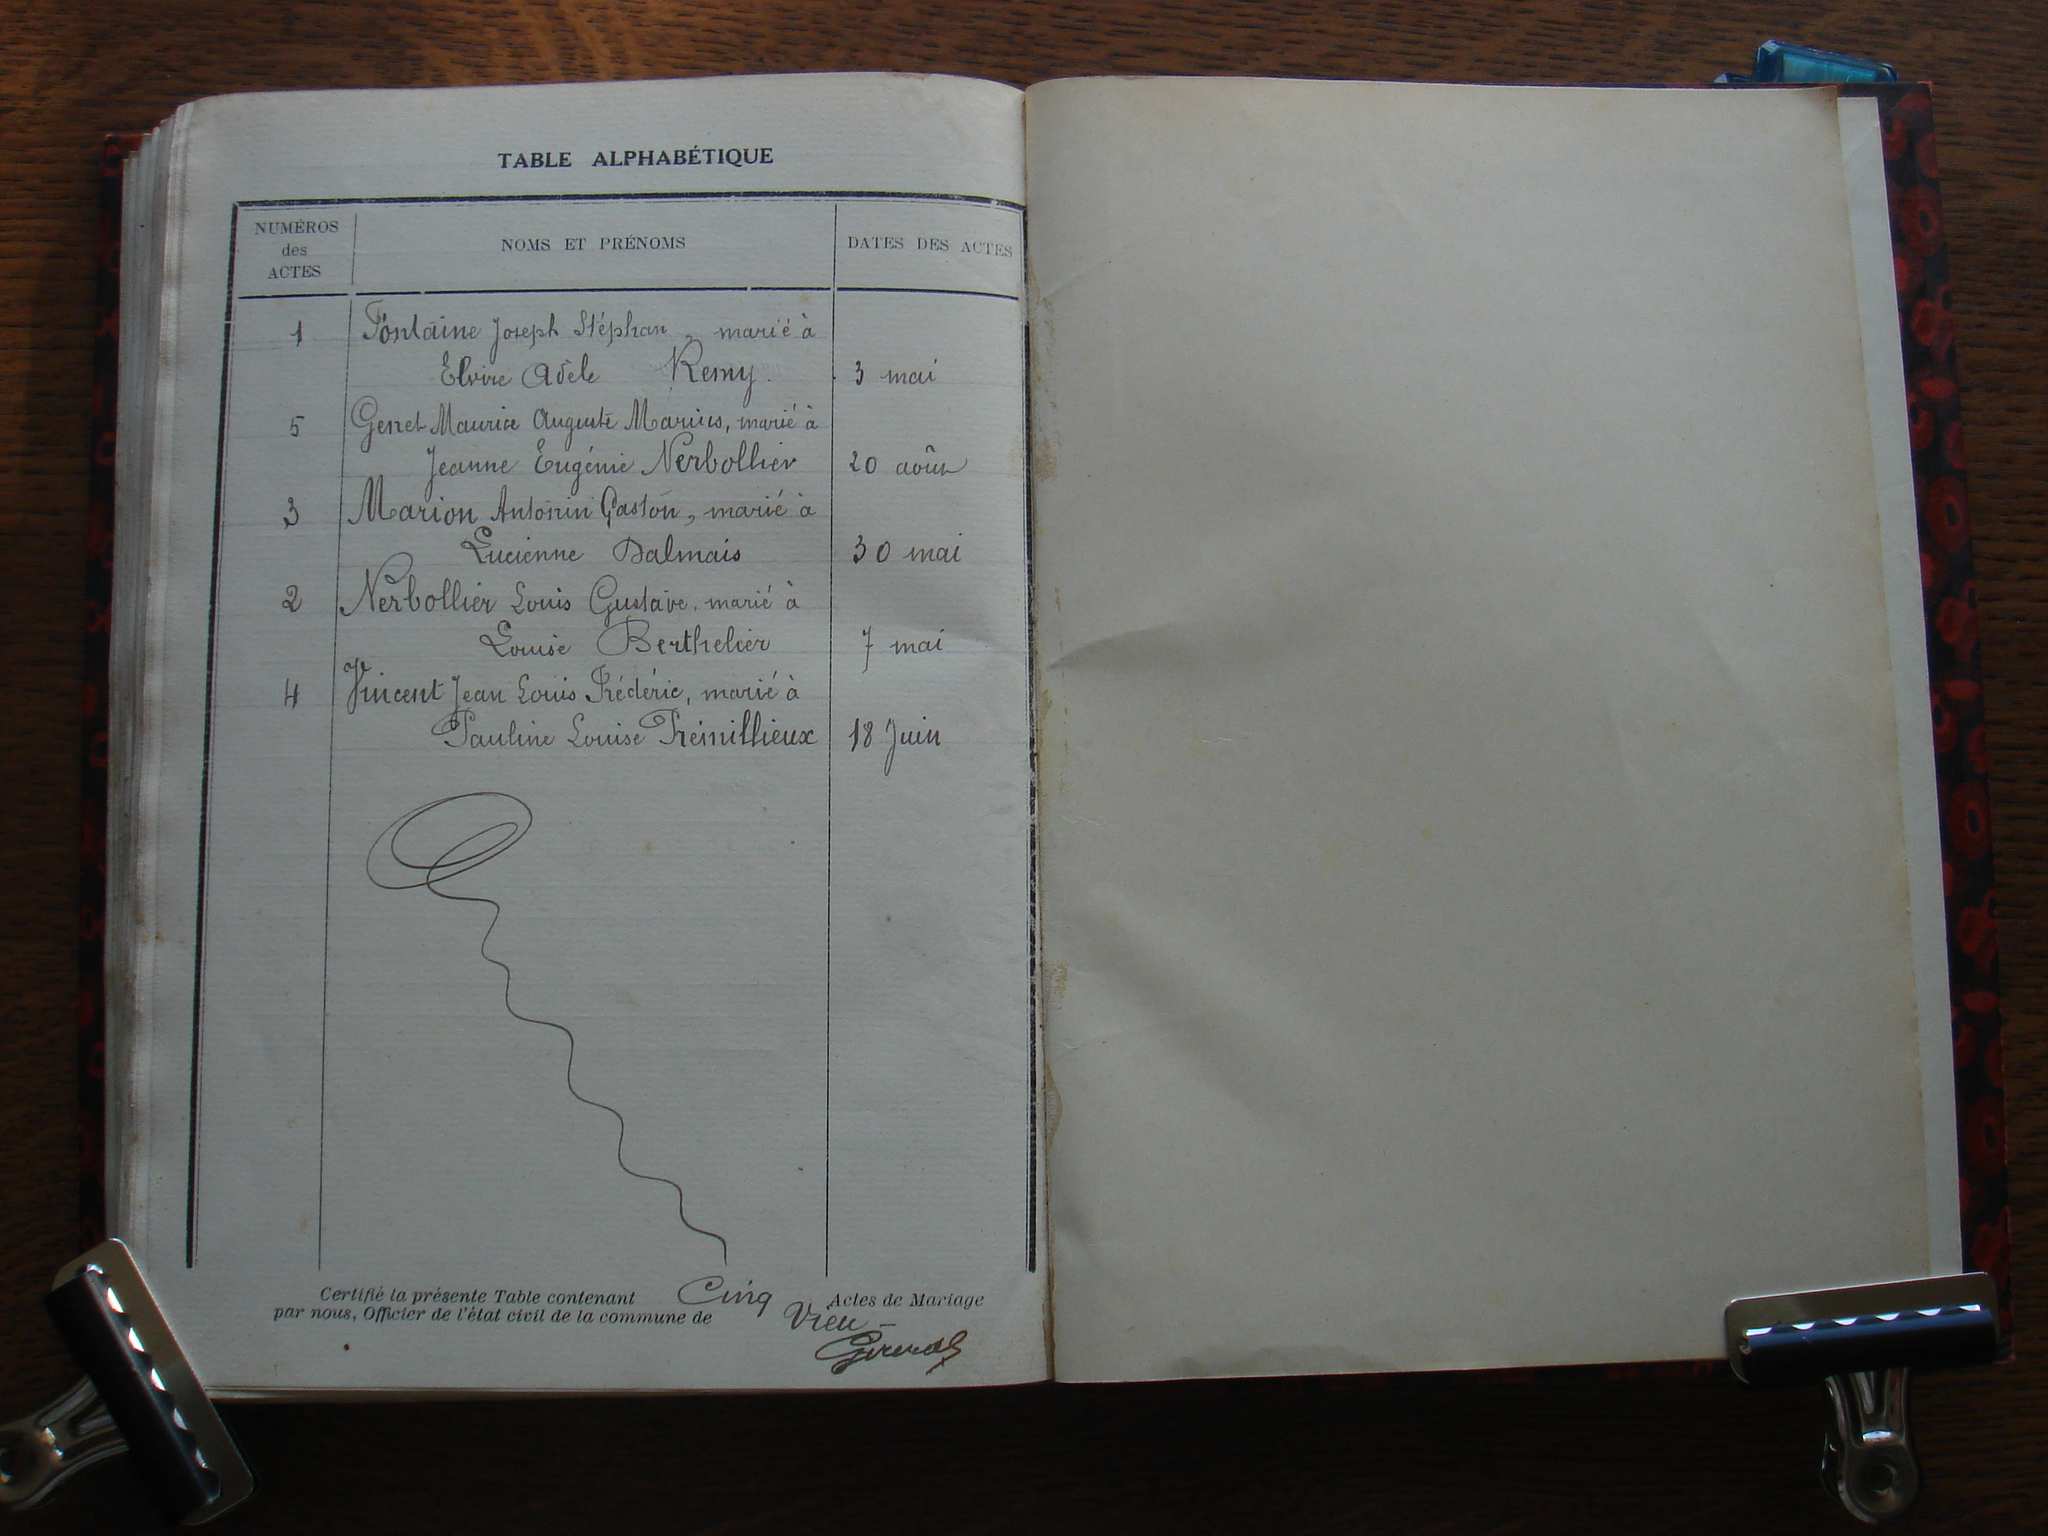 TABLE ALPHABÉTIQUE
NUMÉROS
des
ACTES
NOMS ET PRÉNOMS
DATES DES ACTES
1 Fontaine Joseph Stéphan, marié à
Elvire Adèle Remy. 3 mai
5 Genet Maurice Auguste Marius, marié à
Jeanne Eugénie Nerbollier 20 août
3 Marion Antonin Gaston, marié à
Lucienne Dalmais 30 mai
2 Nerbollier Louis Gustave, marié à
Louise Berthelier 7 mai
4 Vincent Jean Louis Frédéric, marié à
Pauline Louise 18 Juin
Certifié la présente Table contenant Cinq Actes de Mariage
par nous, Officier de l'état civil de la commune de Vieu